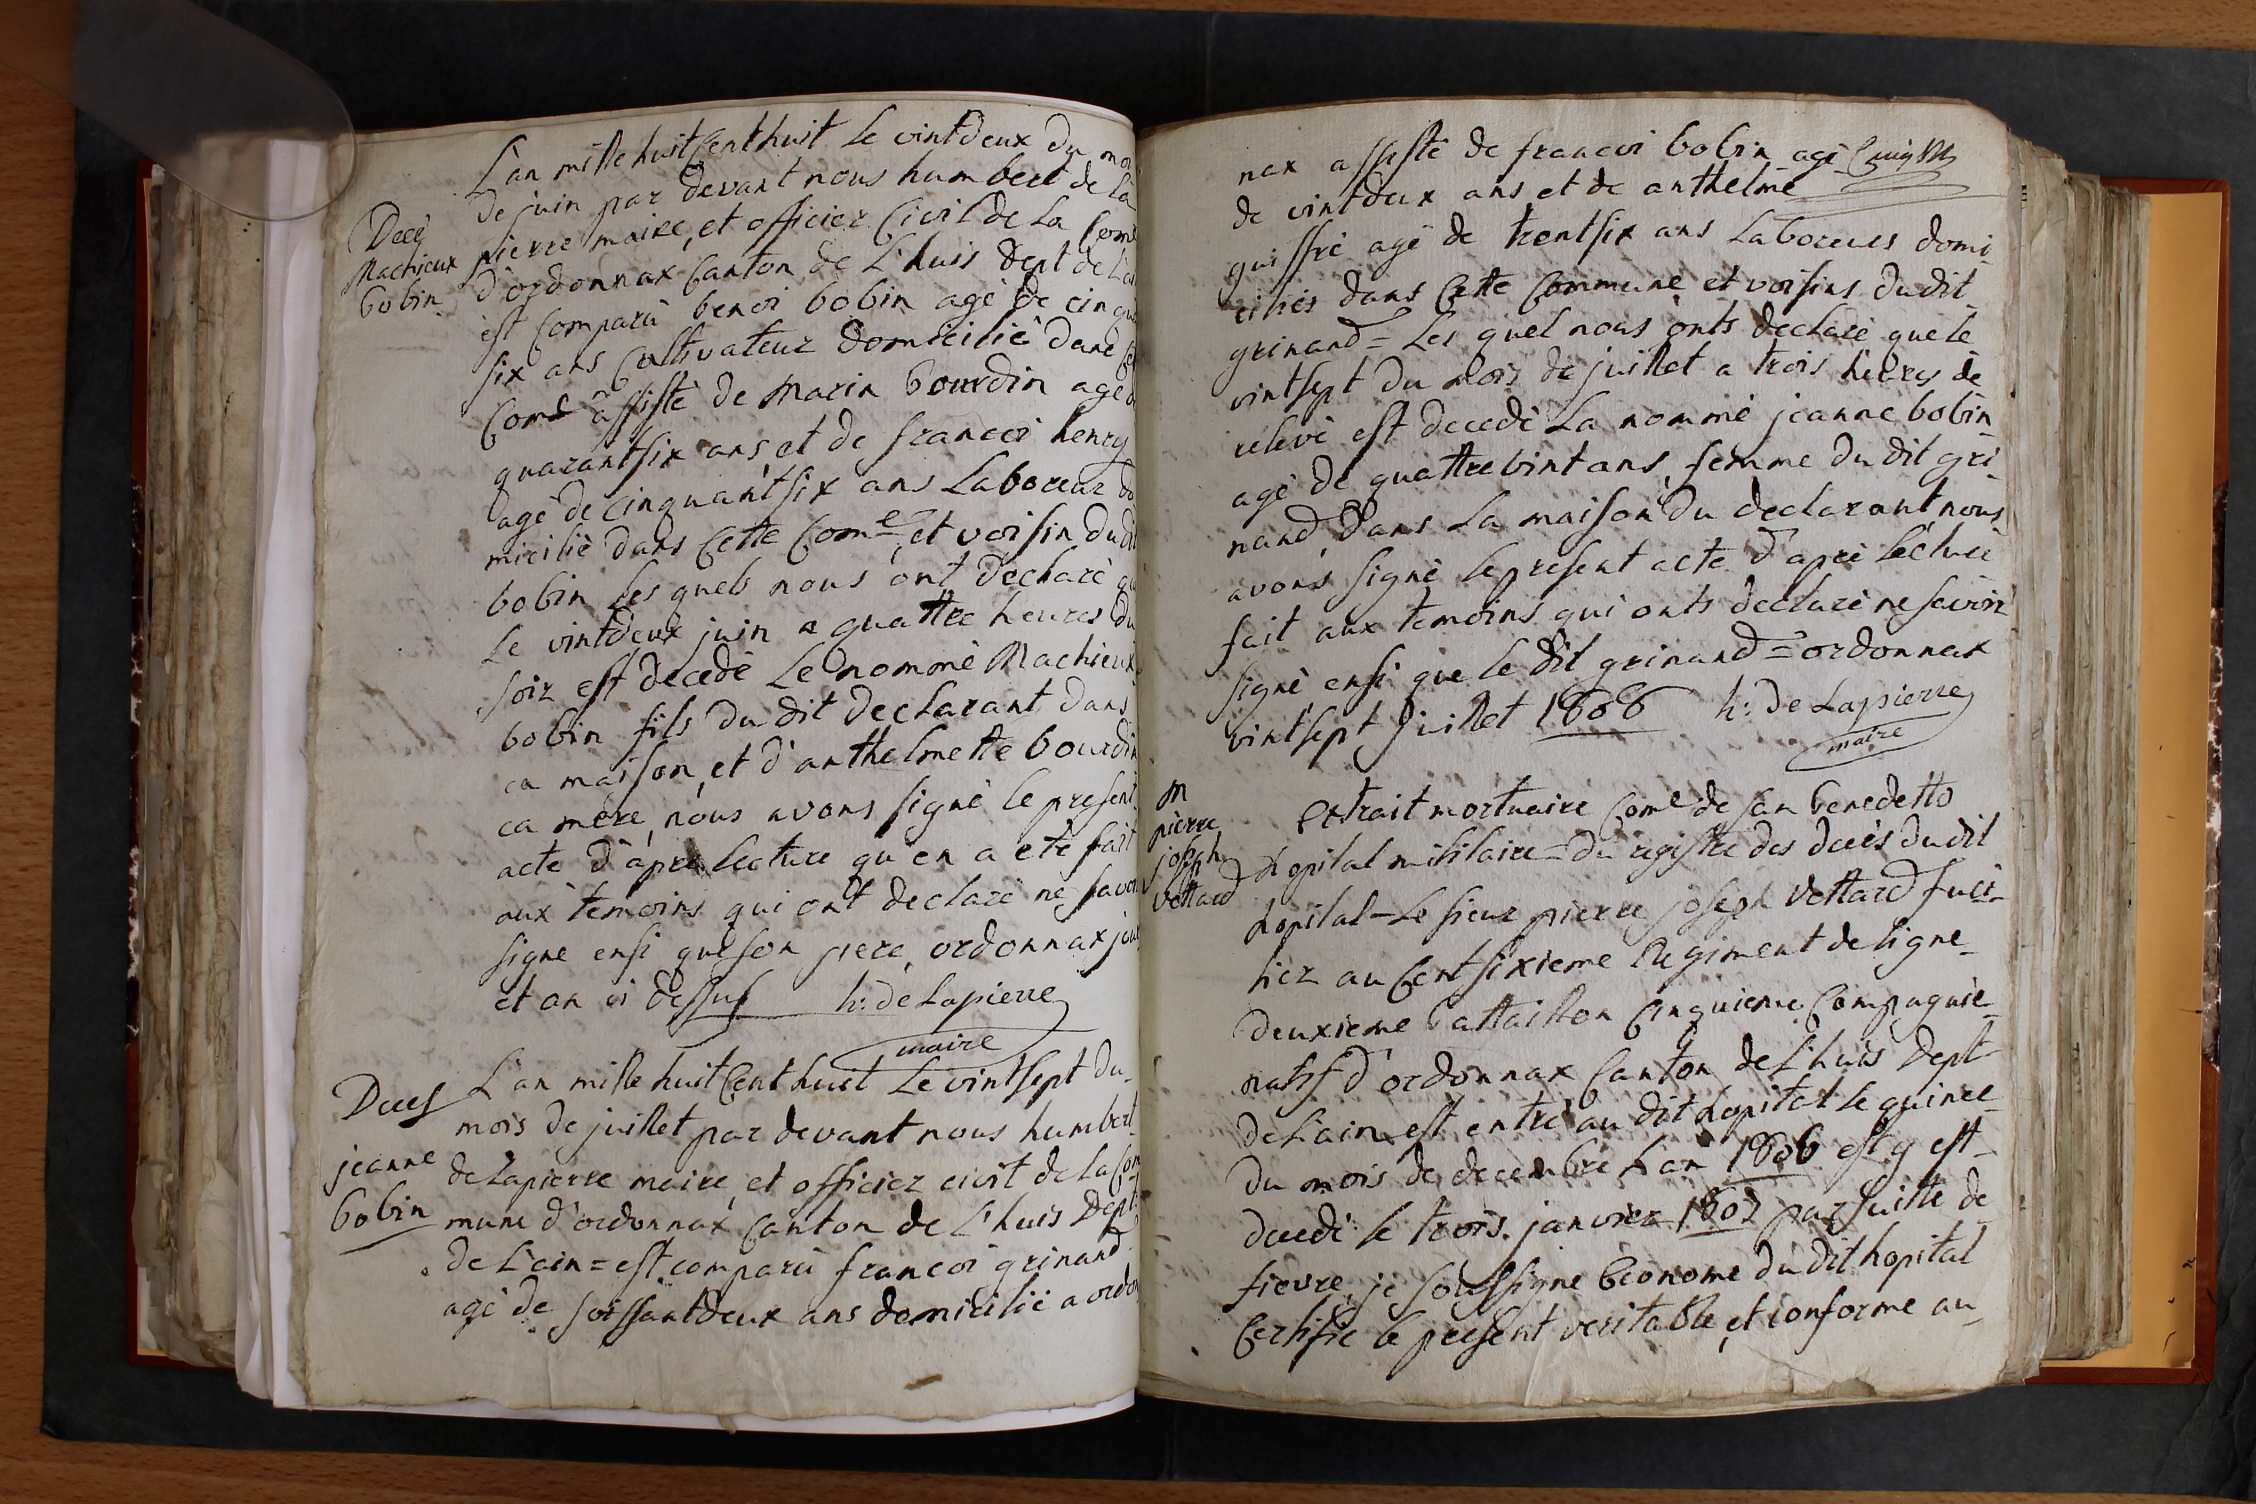 L'an mille huit Cent huit le vintdeux du moi
de juin par devant nous humbert de la
pierre maire, et officier Civil de la Come
d'ordonnax Canton de L'huis Dept de L'ai
est Comparu benoi bobin agé de cinqua
six ans Cultivateur domicilié dans Ce
Come assisté de Marin bourdin agé de
quarantsix ans et de francoi henry
agé de cinquantsix ans Laboreur do
micilié dans Cette Come, et voisin du dit
bobin Les quels nous ont declaré que
Le vintdeux juin a quattre heures du
soir est decedé Le nommé Machieux
bobin fils du dit declarant dans
ca maison, et d'anthelmette bourdin
ca mere, nous avons signé le present
acte d'apre lecture qu'en a eté fait
aux temoins qui ont declaré ne savoi
signe ensi que son pere, ordonnax jour
et an ci dessus h: de Lapierre
maire
Decè
Machieux
bobin
L'an mille huit Cent huit Le vintsept du
mois de juillet par devant nous humbert
de Lapierre maire, et officier civil de la Com
mune d'ordonnax Canton de L'huis Dept
de L'ain = est comparu francoi grinand
agé de soissantdeux ans domicilié a ordon
Deces
jeanne
bobin
nax assisté de francoi bobin agé
de vintdeux ans et de anthelme
guiffré agé de trentsix ans Laboreurs domi
ciliés dans Cette Commune et voisins du dit
grinand = Les quel nous onts declaré que le
vintsept du mois de juillet a trois heures de
relevé est decedé La nommé jeanne bobin
agé de quattrevint ans, femme du dit gri
nand, dans La maison du declarant, nous
avons signé le present acte d'aprè lecture
fait aux temoins qui onts declaré ne savoir
signé ensi que le dit grinand = ordonnax
vintsept juillet 1808 h: de Lapierre
maire
m
pierre
joseph
Vettard
Extrait mortuaire Come de san benedetto
hopital militaire = du registre des deces du dit
hopital = Le sieur pierre joseph Vettard fusi-
lier au Cent sixieme Regiment de ligne
deuxieme battaillon Cinquieme Compagnie
natif d'ordonnax Canton de L'huis Dept
de L'ain est entré au dit hopital le quinze
du mois de decembre L'an 1806 est y est
decedé le trois janvier 1807 par suitte de
fievre, je soussigne Econome du dit hopital
Certifie le present veritable, et conforme au